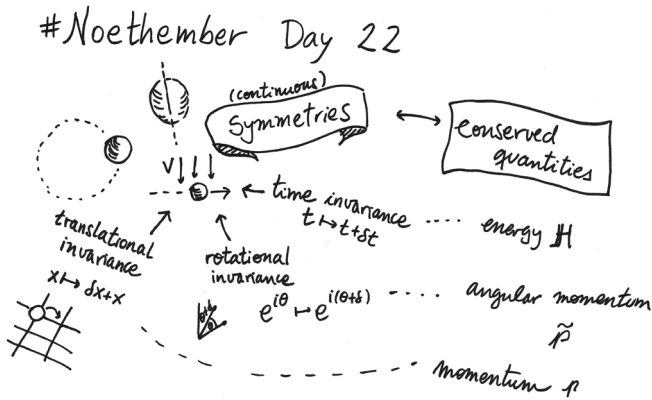 #Noethember Day 22
(continuous)
Symmetries
Conserved
quantities
V
time invariance
t ↦ t+δt
energy H
translational
invariance
x ↦ δx+x
rotational
invariance
θ+δ
θ
e^{iθ} ↦ e^{i(θ+δ)}
angular momentum
p̃
momentum p